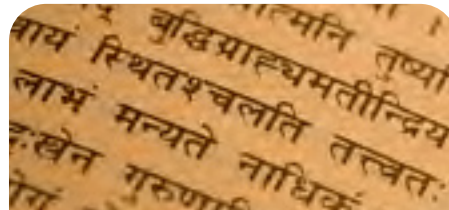 त्मनि तुष्य
बुद्धिग्राह्यमतीन्द्रिय
वायं स्थितश्चलति तत्त्वतः
लाभं मन्यते नाधिकं
दुःखेन गुरुणा
योगं